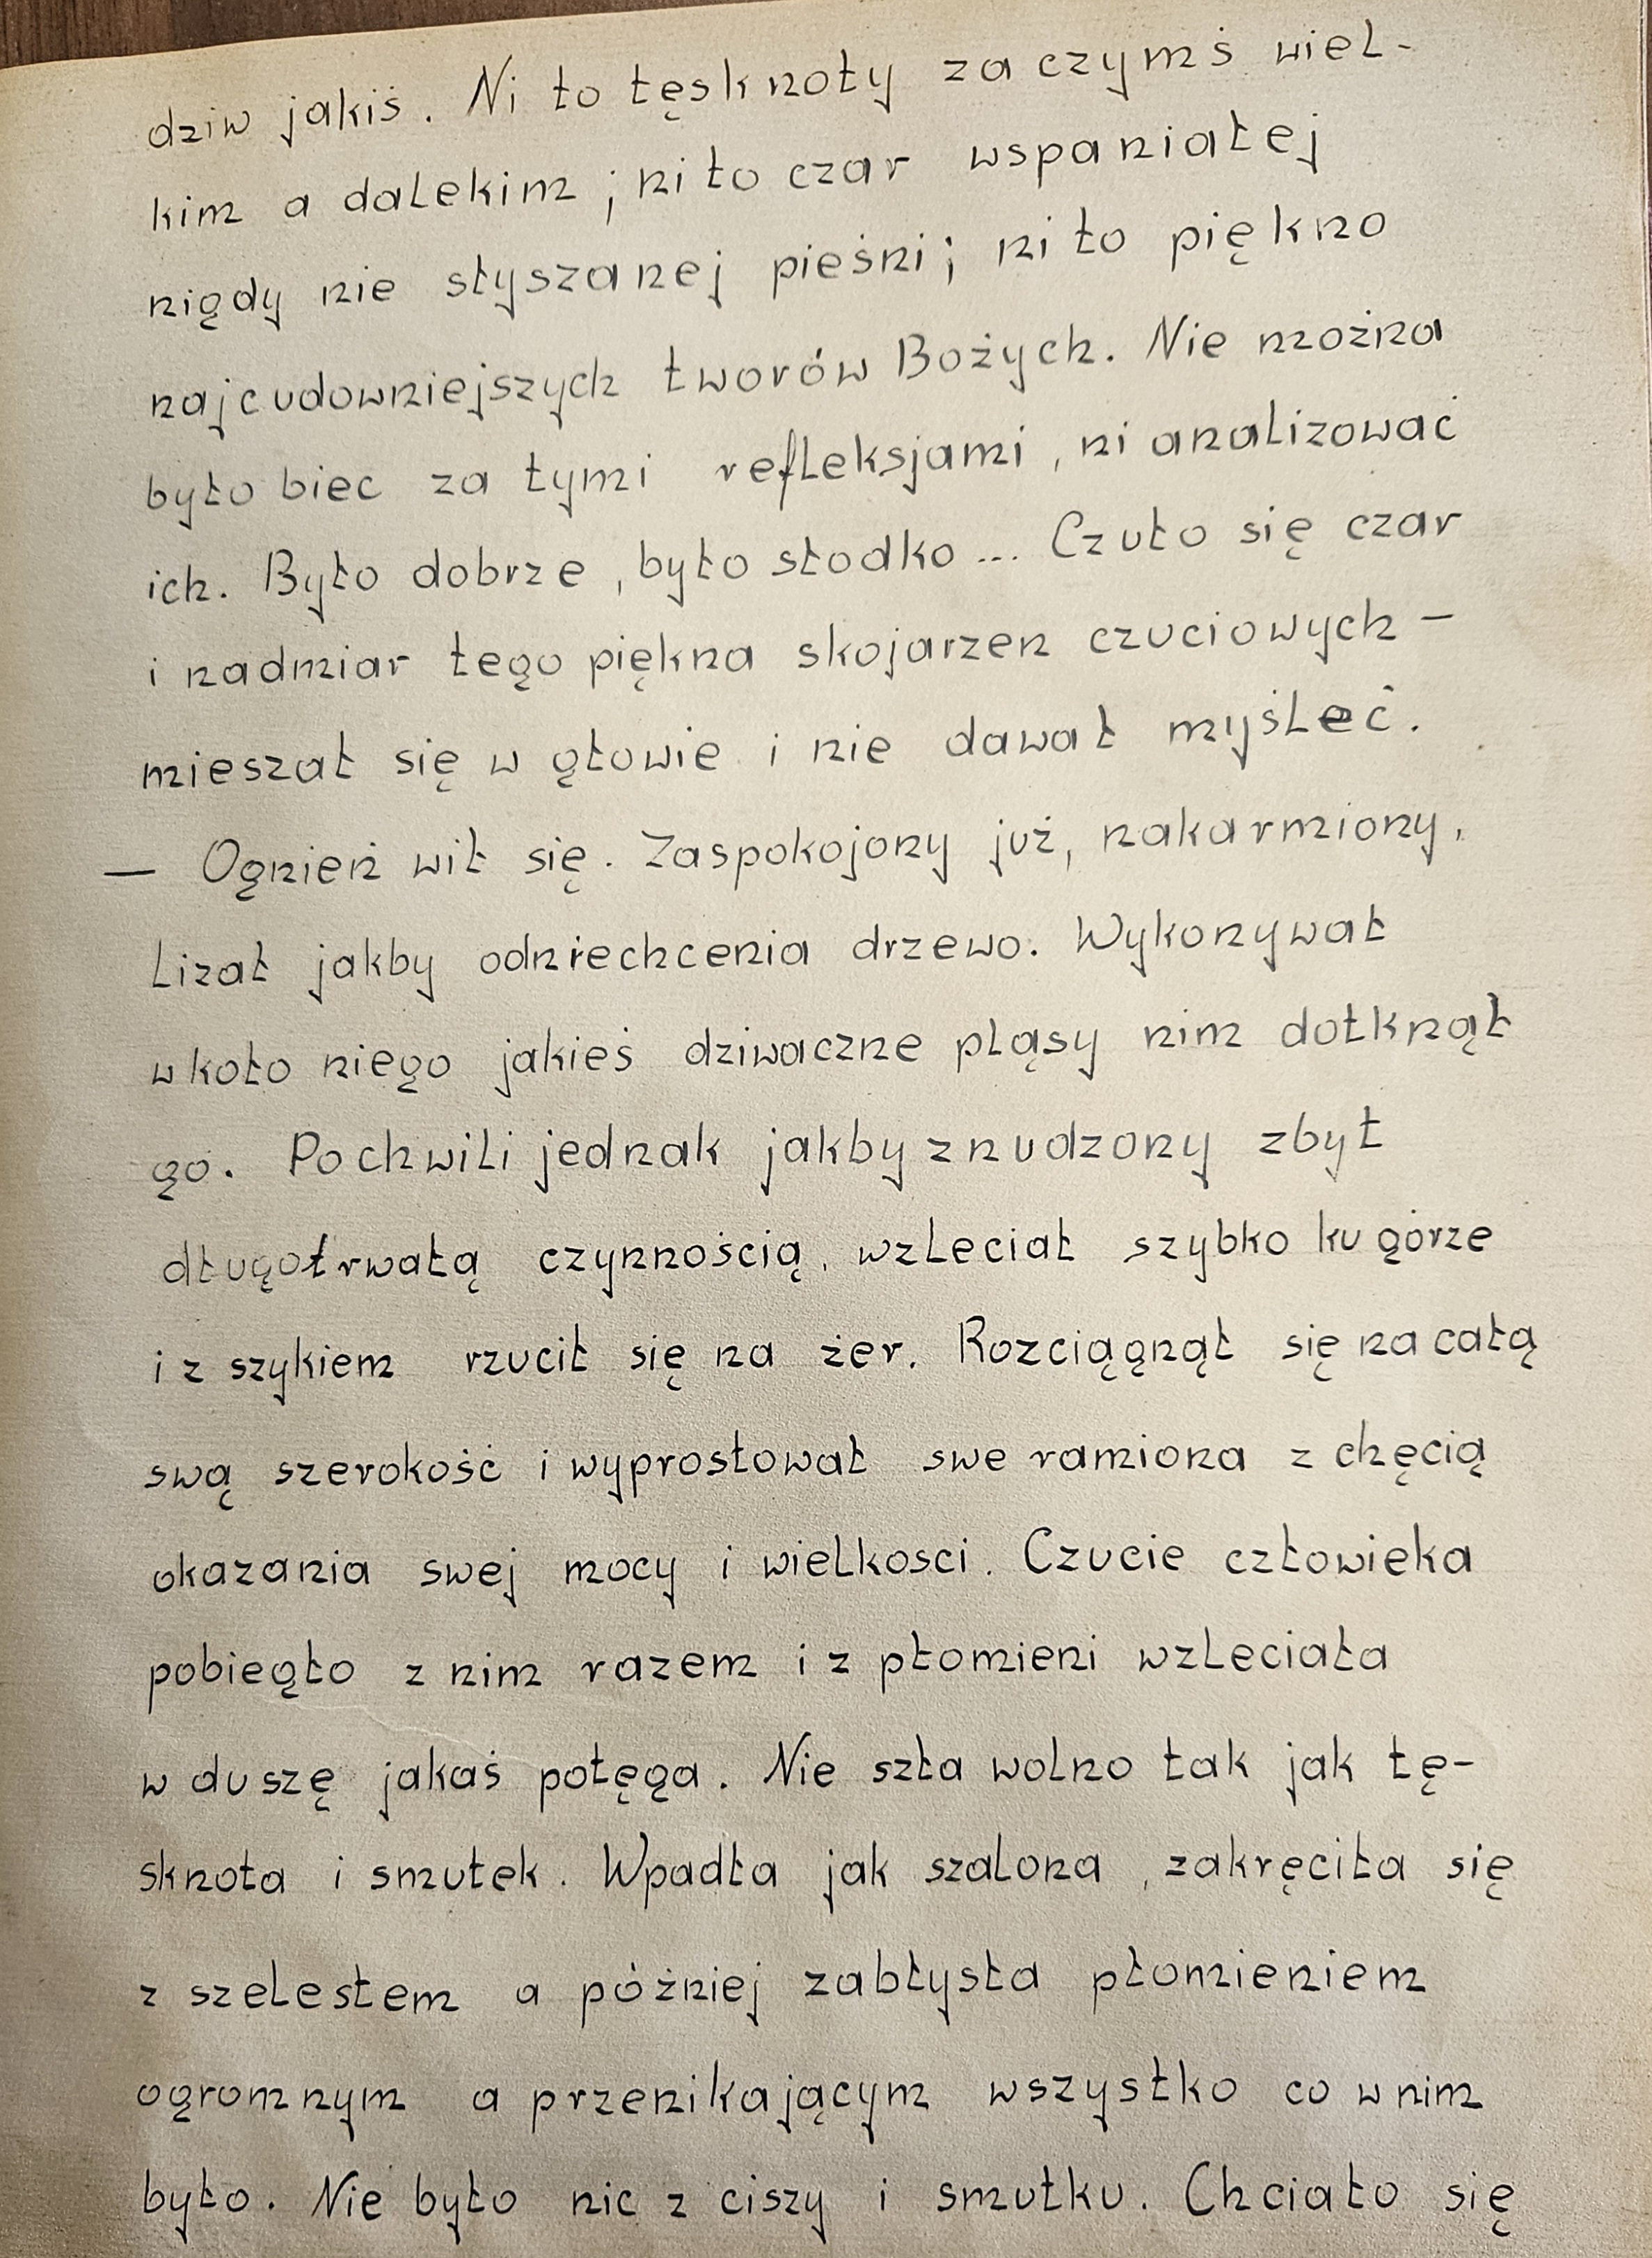 dziw jakiś. Ni to tęsknoty za czymś wiel-
kim a dalekim; ni to czar wspaniałej
nigdy nie słyszanej pieśni; ni to piękno
najcudowniejszych tworów Bożych. Nie można
było biec za tymi refleksjami, ni analizować
ich. Było dobrze, było słodko... Czuło się czar
i nadmiar tego piękna skojarzen czuciowych –
mieszał się w głowie i nie dawał myśleć.
— Ognień wił się. Zaspokojony już, nakarmiony,
lizał jakby odniechcenia drzewo. Wykonywał
wkoło niego jakieś dziwaczne pląsy nim dotknął
go. Pochwili jednak jakby znudzony zbyt
długotrwałą czynnością, wzleciał szybko ku górze
i z szykiem rzucił się na żer. Rozciągnął się na całą
swą szerokość i wyprostował swe ramiona z chęcią
okazania swej mocy i wielkosci. Czucie człowieka
pobiegło z nim razem i z płomieni wzleciała
w duszę jakaś potęga. Nie szła wolno tak jak tę-
sknota i smutek. Wpadła jak szalona, zakręciła się
z szelestem a póżniej zabłysła płomieniem
ogromnym a przenikającym wszystko co w nim
było. Nie było nic z ciszy i smutku. Chciało się